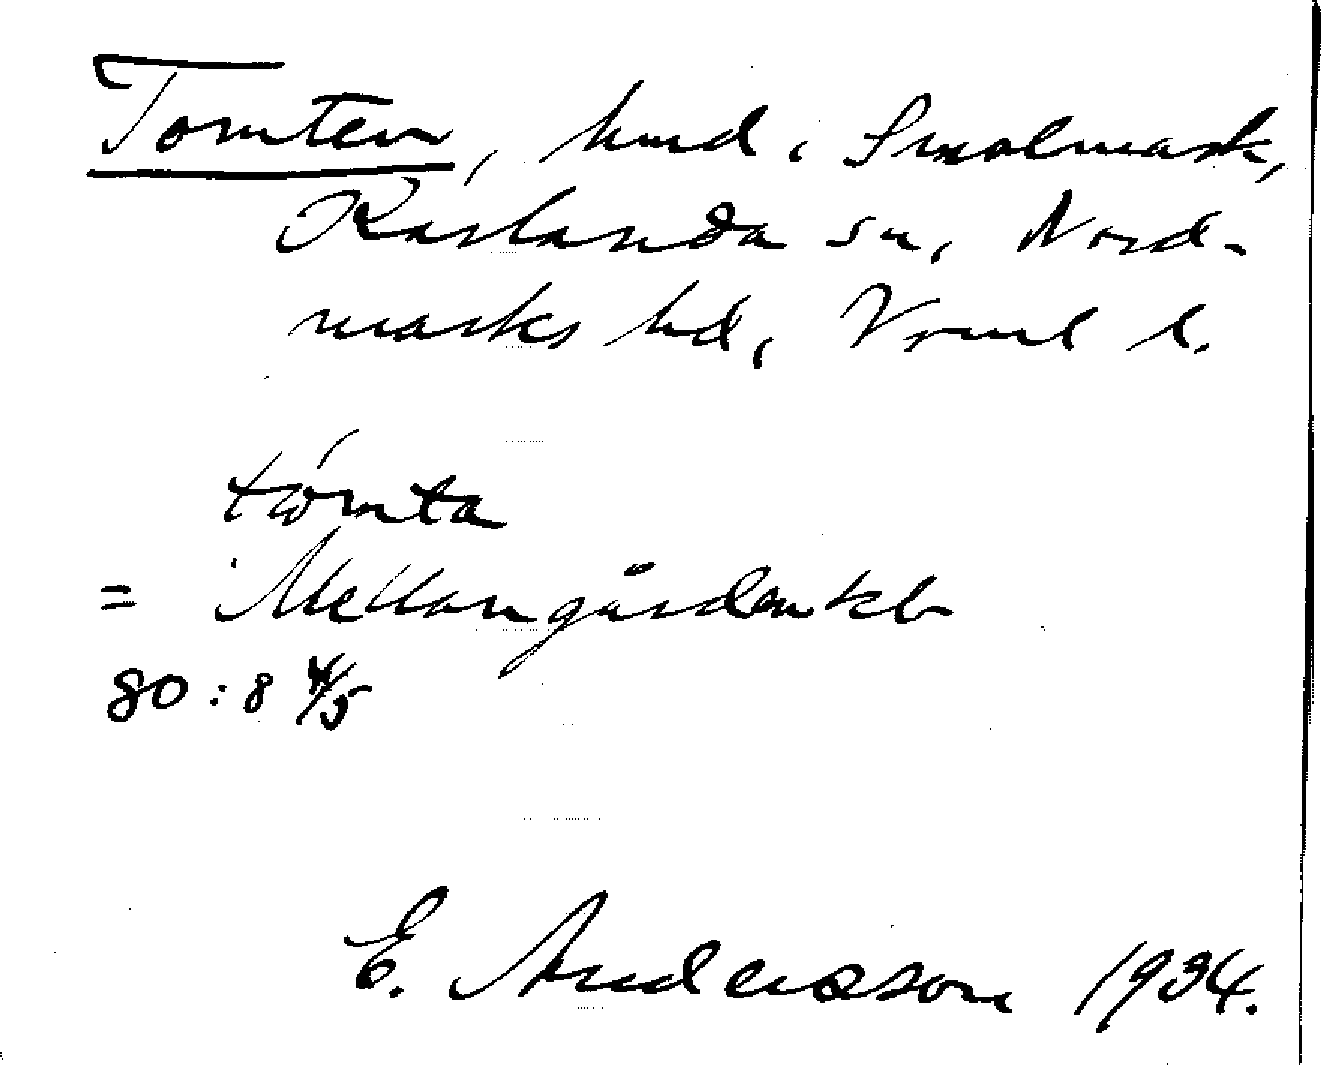 Tomten, hmd i Smolmark,
Karlanda sn, Nord-
marks hd, Vrml l.
tómta
= Mellangården kb
80:8 4/5
E. Andersson 1934.